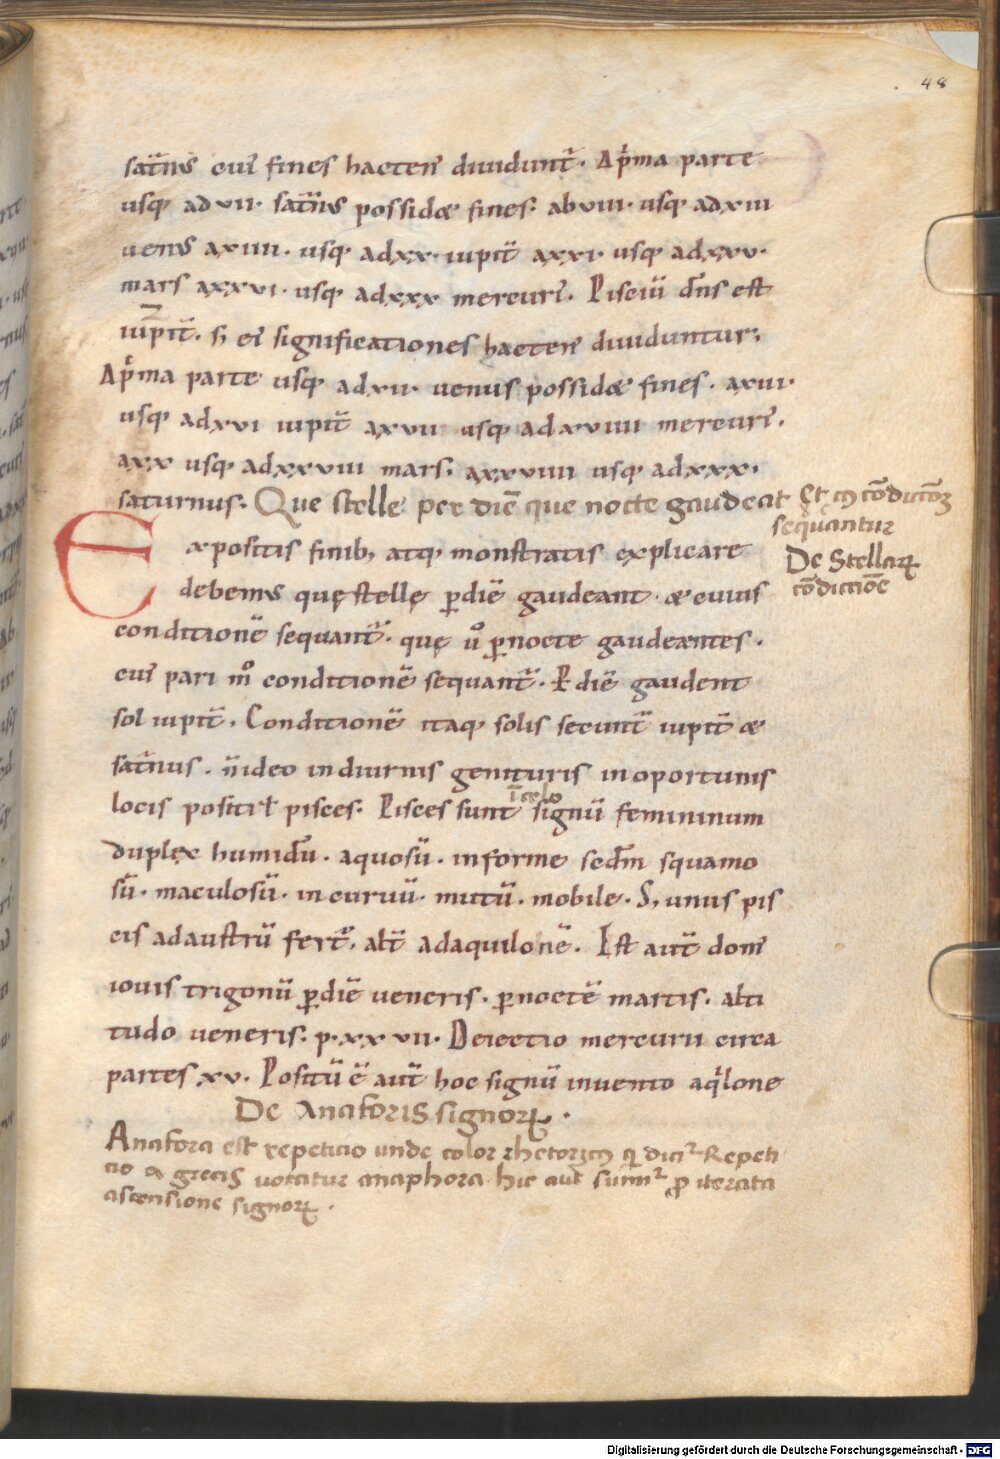 48
sat̄nus cuī fines hactenꝰ diuidunt̄. A pͥma parte
usq; ad vii. sat̄nus possidet fines. ab viii. usq; ad xiii
uenus a xiiii. usq; ad xx. iupit̄ a xxi. usq; ad xxv.
mars a xxvi. usq; ad xxx mercuri᷒. Pisciū dn̄s est
iupit̄. s; ei᷒ significationes hactenꝰ diuiduntur;
A pͥma parte usq; ad xii. uenus possidet fines. a xiii.
usq; ad xvi iupit̄ a xvii usq; ad xviiii mercuri᷒.
a xx usq; ad xxviii mars. a xxviiii usq; ad xxx.
saturnus. Que stelle per diē que nocte gaudeāt Et cꝰ cōditōȝ
sequantur
Expositis finib; atq; monstratis explicare
De Stellaꝝ
cōdictiōe
debemus quę stellę p̄ diē gaudeant et cuius
conditionē sequant̄. quę ū p̄ nocte gaudentes.
cui᷒ pari mͦ conditionē sequant̄. P̄ diē gaudent
sol iupit̄. Conditionē itaq; solis secunt̄ iupit̄ et
sat̄nus. n̄ ideo in diurnis genituris in oportunis
ī celo
locis positi ł pisces. Pisces sunt signū femininum
duplex humidū. aquosū. informe sedm̄ squamo
sū. maculosū. incuruū. mutū. mobile. S; unus pis
cis ad austrū fert̄. alt̄ ad aquilonē. Est aut̄ domꝰ
iouis trigonū p̄ diē ueneris. p̄ noctē martis. alti
tudo ueneris. p. xx vii. Deiectio mercurii circa
partes xv. Positū ē aut̄ hoc signū inuento aqͥlone
De Anaforis signoꝝ.
Anafora est repeticio unde color rhetoricꝰ qͥ diciť Repeti
cio a grecis uocatur anaphora hic aut̄ sumiť p̱ iterata
ascensione signoꝝ.
Digitalisierung gefördert durch die Deutsche Forschungsgemeinschaft - DFG